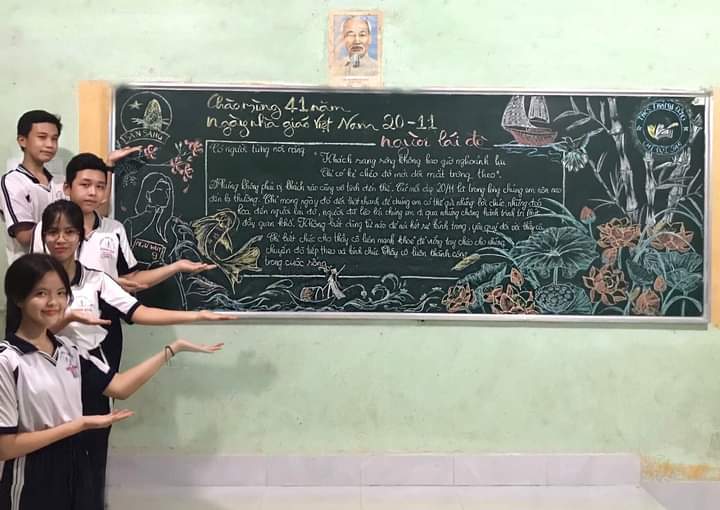 Chào mừng 41 năm
ngày nhà giáo Việt Nam 20-11
người lái đò
Có người từng nói rằng
"Khách sang sông không bao giờ nghoảnh lại
Chỉ có kẻ chèo đò mới dõi mắt trông theo".
Nhưng không phải vị khách nào cũng vô tình đến thế. Cứ mỗi dịp 20/11 là trong lòng chúng em nôn nao
đến lạ thường. Chỉ mong ngày đó đến thật nhanh để chúng em có thể gửi những lời chúc, những đóa
hoa đến người lái đò, người đã lèo lái chúng em đi qua những chặng hành trình tri thức
đầy gian khó. Không biết dùng từ nào để nói hết sự kính trọng, yêu quý đó với thầy cô.
Chỉ biết chúc cho thầy cô luôn mạnh khoẻ để vững tay chèo cho những
chuyến đò tiếp theo và kính chúc thầy cô luôn thành công
trong cuộc sống.